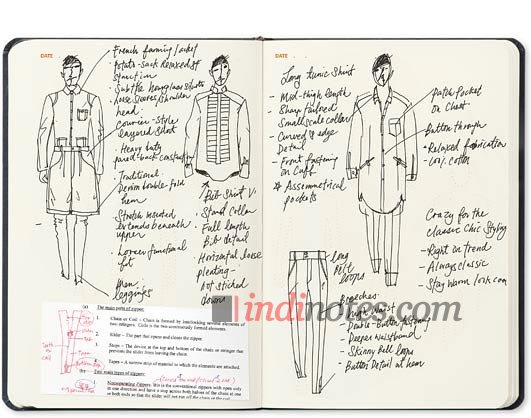 DATE
French farming jacket
• Potato-sack relaxed fit
Structure
• Subtle hourglass shirts
• loose sleeves/shoulder
head.
• courier-style
layered short
• Heavy duty
pared-back
• Traditional
Denim double fold
hem
• Stretch inserted
extends beneath
upper
functional
fit
Bib Shirt V.
• Stand Collar
• Full length
Bib detail
• Horizontal loose
pleating -
not stitched
down
leggings
(a) The main parts of zipper:
1. Chain or Coil – Chain is formed by interlocking several elements of
two stringers. Coils is the two continuously formed elements.
2. Slider – The part that opens and closes the zipper.
3. Stops – The device at the top and bottom of the chain or stringer that
prevents the slider from leaving the chain.
4. Tapes – A narrow strip of material to which the elements are attached.
(b) Two main types of zipper:
Nonseparating zippers: this is the conventional zippers with open only
in one direction and have a stop across both halves of the chain at one
or both ends so that the slider will not run off the chain or the coil.
DATE
Long tunic Shirt
- Mid-thigh length
Sharp tailored
Small scale collar
- Curved edge
Detail
- Front fastening
on Cuff
* Assemmetrical
pockets
Patch Pocket
on Chest
Button through
- Relaxed fabrication
100% cotton
Crazy for the
Classic Chic Styling
- Right in trend
- Always classic
- Stay warm look cool
long
Belt
loops
Breeches
- Double-Button fastening
- Deeper waistband
- Skinny Belt loops
- Button Detail at hem
indinotes.com